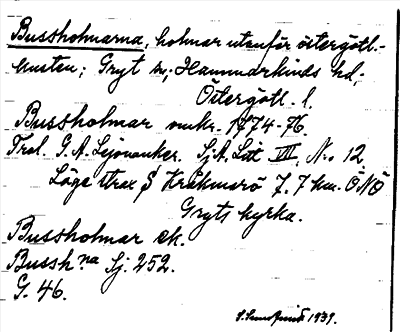 Bussholmarna, holmar utanför östergötl.-
kusten; Gryt sn, Hammarkinds hd,
Östergötl. l.
Bussholmar omkr. 1774-76.
Trol. G. A. Lejonanker. Sj.A. Litt VIII, N:o 12.
Läge strax S Kråkmarö 7,7 km. ÖNÖ
Gryts kyrka.
Bussholmar ek.
Bussh.na Sj. 252.
G. 46.
1939.